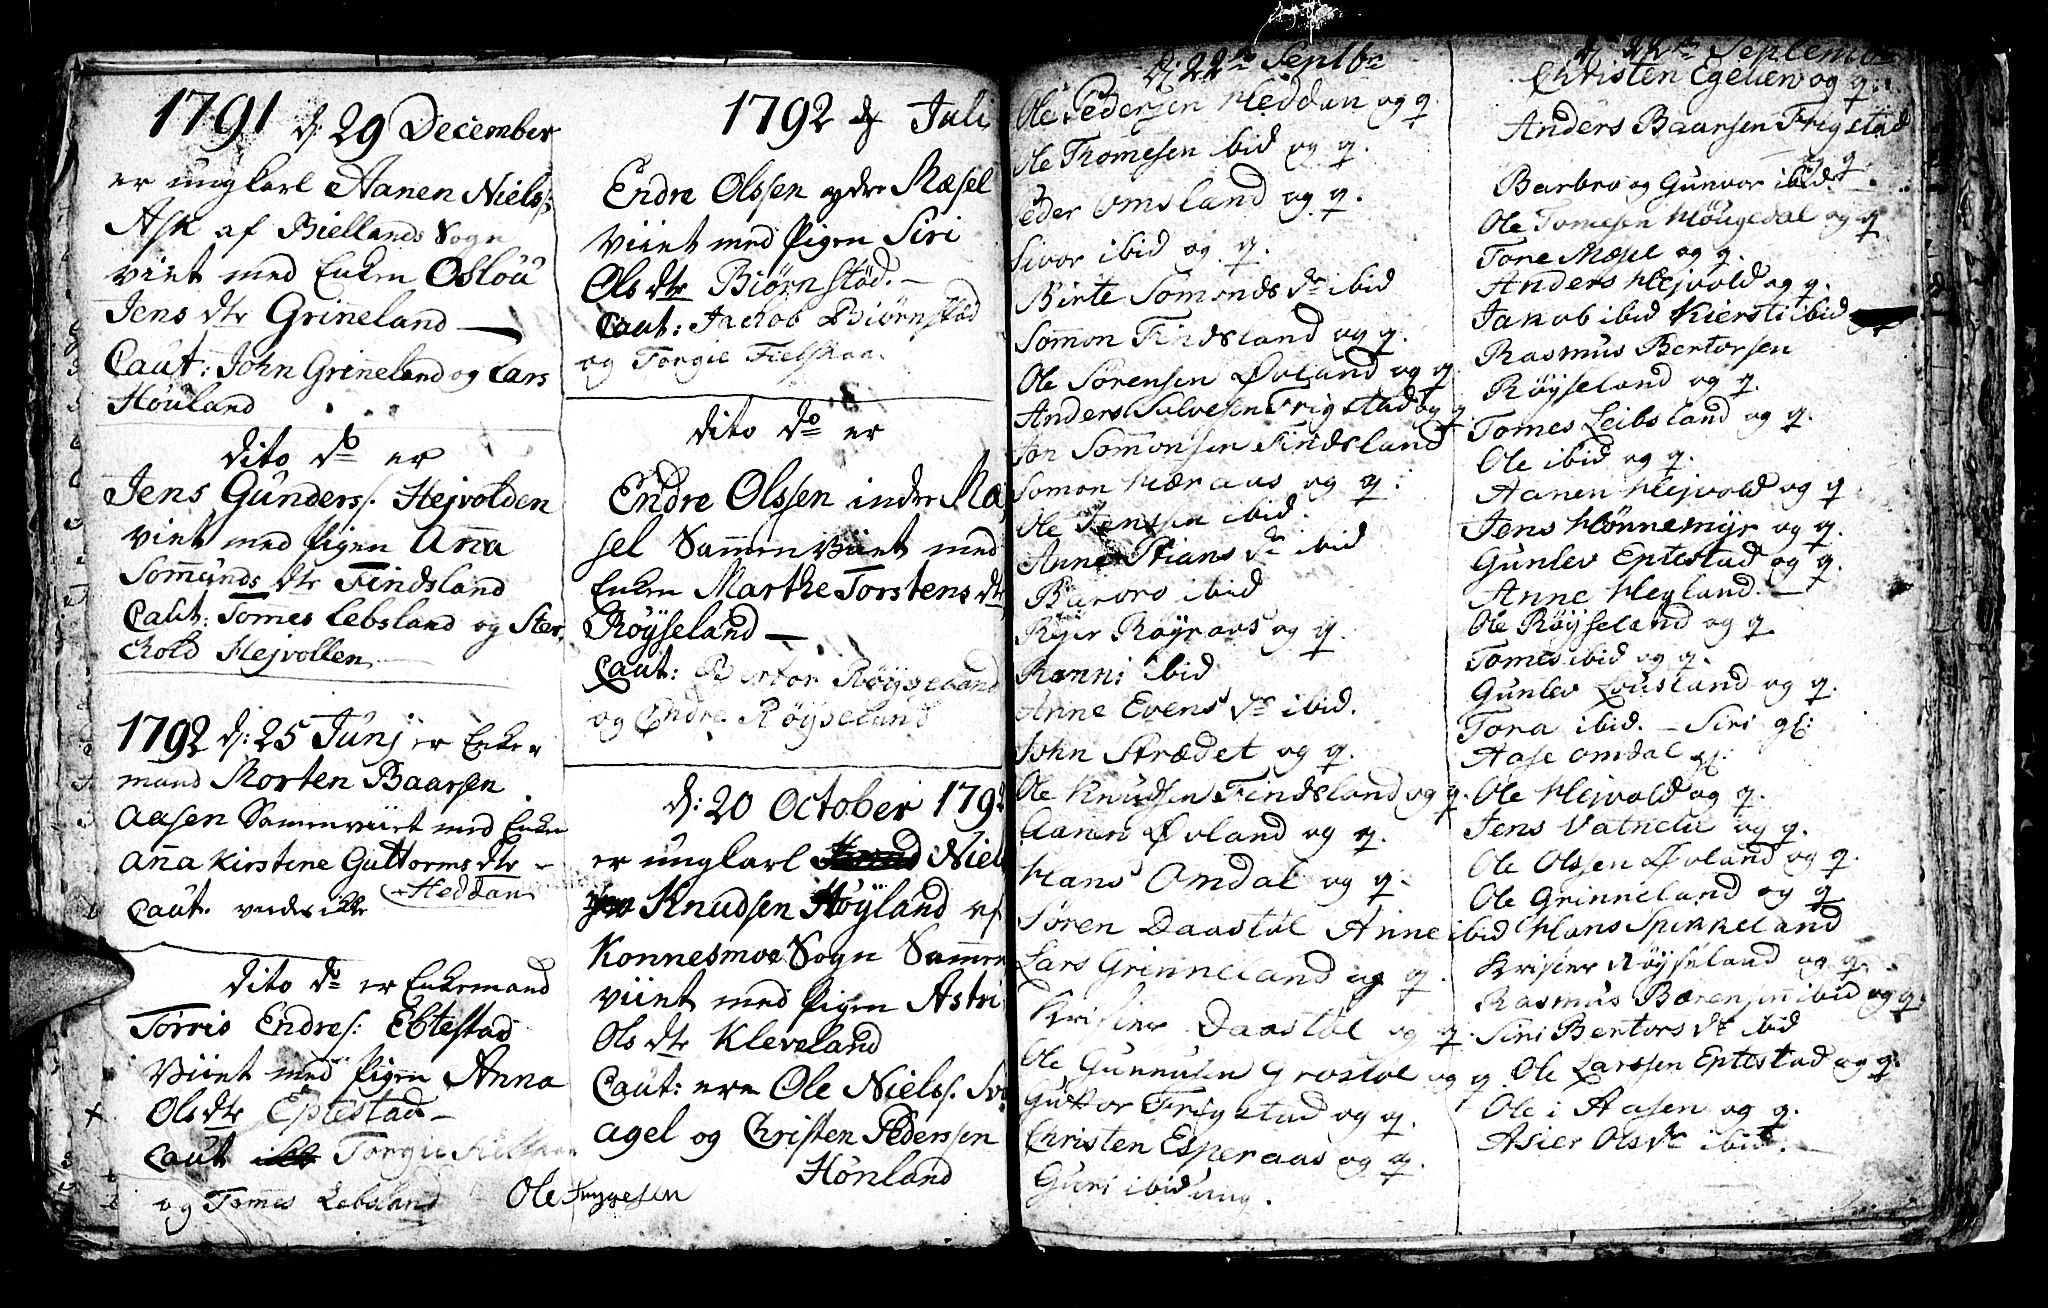 1791 d: 29 December
er ungkarl Aanen Nielss:
Ask af Biellands Sogn
viet med Enken Oslou
Jens dtr Grineland —
Caut: John Grineland og Lars
Höuland
dito do er
Jens Gunderss: Hejvolden
viet med Pigen Anna
Somunds dtr Findsland
Caut: Tomes Lebsland og Ster
kold Hejvollen
1792 d: 25 Junj er Enke
mand Morten Baarsen
Aasen Samenviet med Enken
Anna Kirstine Guttorms dtr —
Heddan
Caut.
dito do er Enkemand
Torris Endres: Ebtestad
Viiet med Pigen Anna
Ols dtr Eptestad. —
Caut Torgie Fielskaa
og Tomes Lebsland
1792 d Juli
Endre Olssen ydre Mæsel
Viiet med Pigen Siri
Ols dtr Biørnstöd. —
Caut: Jackob Biørnstöd
og Torgie Fielskaa
dito do er
Endre Olssen indre Mæ
sel Sammen Viiet med
Enken Marthe Torstens dtr
Røyseland —
Caut: Bertor Røysseland
og Endre Røyseland
d: 20 October 1792
er ungkarl Niels
Knudsen Høyland af
Konnesmoe Sogn Sammen
viiet med Pigen Astri
Ols dtr Kleveland
Caut: ere Ole Nielss.
agel og Christen Pederssen
Hönland
Ole Tryggesen
d: 22de Septbr
Ole Pedersen Heddan og q.
Ole Tromesen ibid og q.
Peder Omsland og q.
Sivor ibid og q.
Birte Somonds dr ibid
Somon Findsland og q.
Ole Sørensen Øvland og q
Anders Salvesen Frigstad og q
Jon Somonsen Findsland
Somon Hæraas og q:
Ole Jenssen ibid.
Anne Stians dr ibid
Barbro ibid
Rejer Røyraas og q.
Ranni ibid
Anne Evens dr ibid.
John Strædet og q.
Ole Knudsen Findsland og q.
Aanen Øvland og q.
Hans Omdal og q.
Søren Daastöl Anne ibid
Lars Grinneland og q.
Krister Daastöl og q.
Ole Gunnusen Grostöl og q
Guttor Frigstad og q.
Christen Esperaas og q.
Guri ibid ung.
d 22de September
Christen Egelien og q.
Anders Baarsen Frigstad
og q.
Barbro og Gunvor ibid.
Ole Tomesen Hougedal og q
Tore Mæsel og q.
Anders Hejvold og q.
Jakob ibid Kiersti ibid
Rasmus Bertorsen
Røyseland og q.
Tomes Leibsland og q.
Ole ibid og q.
Aanen Hejvold og q
Jens Hønnemyr og q.
Gunlev Eptestad og q.
Anne Hegland. —
Ole Røysseland og q
Tomes ibid og q.
Gunlev Lousland og q.
Tora ibid. — Siri ql:
Aase Omdal ql:
Ole Hejvold og q.
Jens Vatnelie og q.
Ole Olssen Øvland og q.
Ole Grinneland og q
Hans Spikkeland
Krister Røysseland og q.
Rasmus Bærensen ibid og q.
Siri Bertors dr ibid
Ole Larssen Eptestad og q.
Ole i Aasen og q.
Asier Ols dr ibid. —